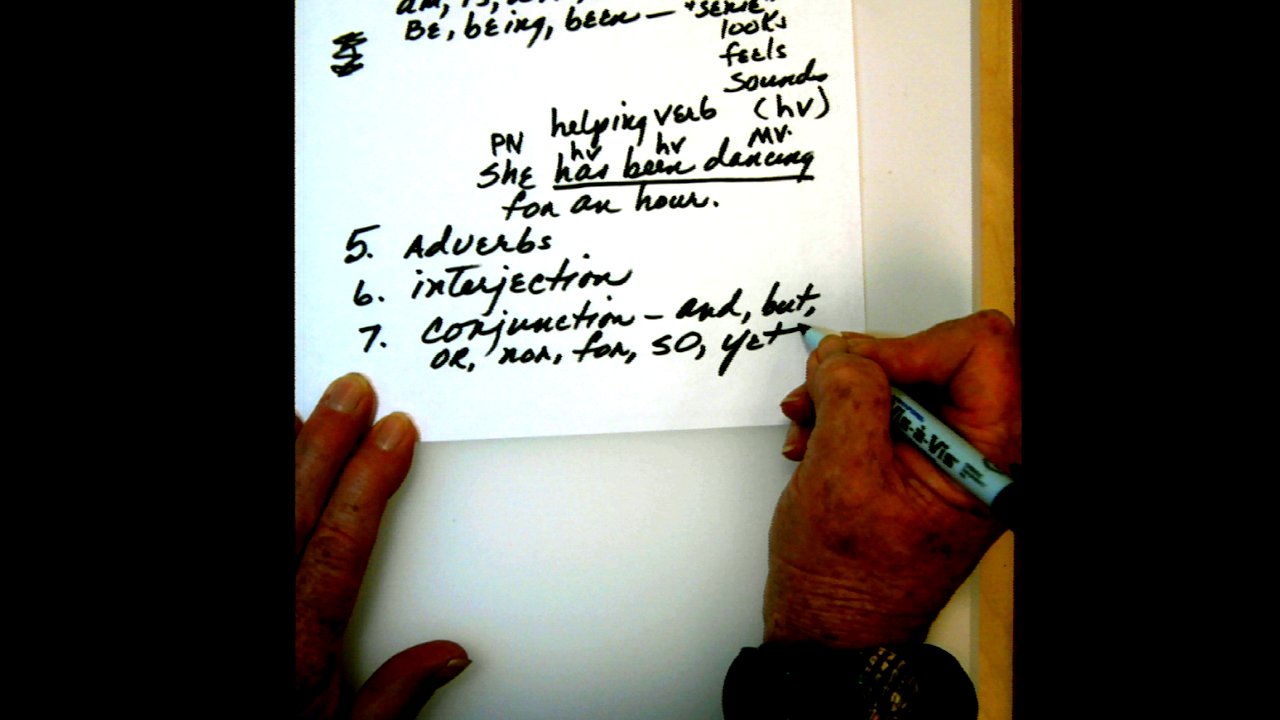 am, is,
BE, being, been — "sense"
looks
feels
sounds
helping verb (hv)
PN hv hv MV.
She has been dancing
for an hour.
5. Adverbs
6. interjection
7. conjunction — and, but,
OR, nor, for, so, yet
Vis-à-Vis